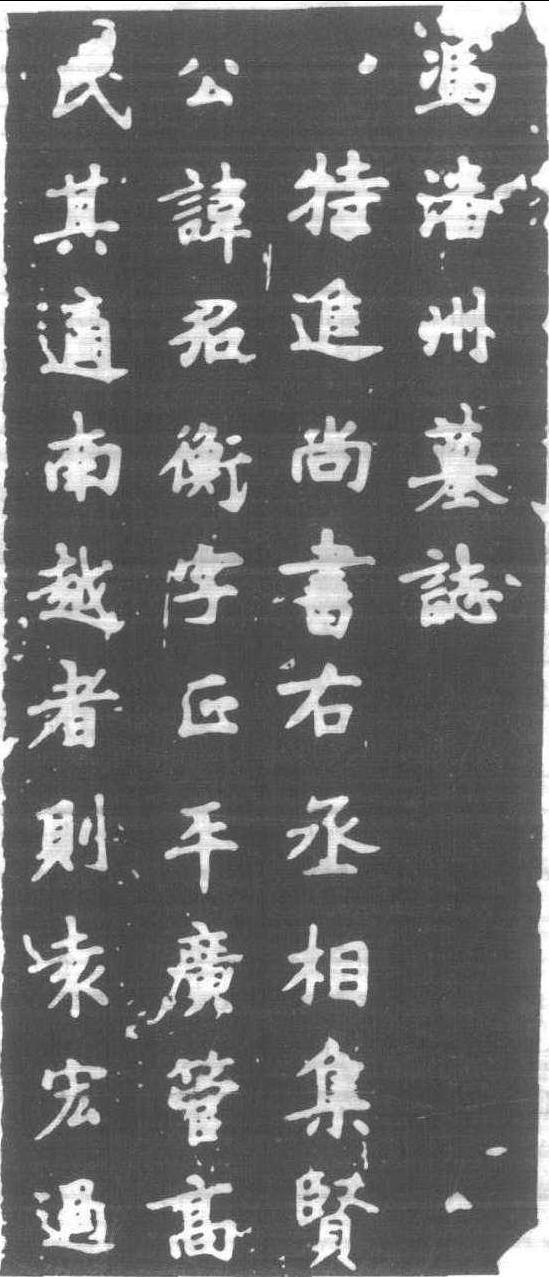 馮潘州墓誌
特進尚書右丞相集賢
公諱君衡字正平廣管高
民其適南越者則宏過